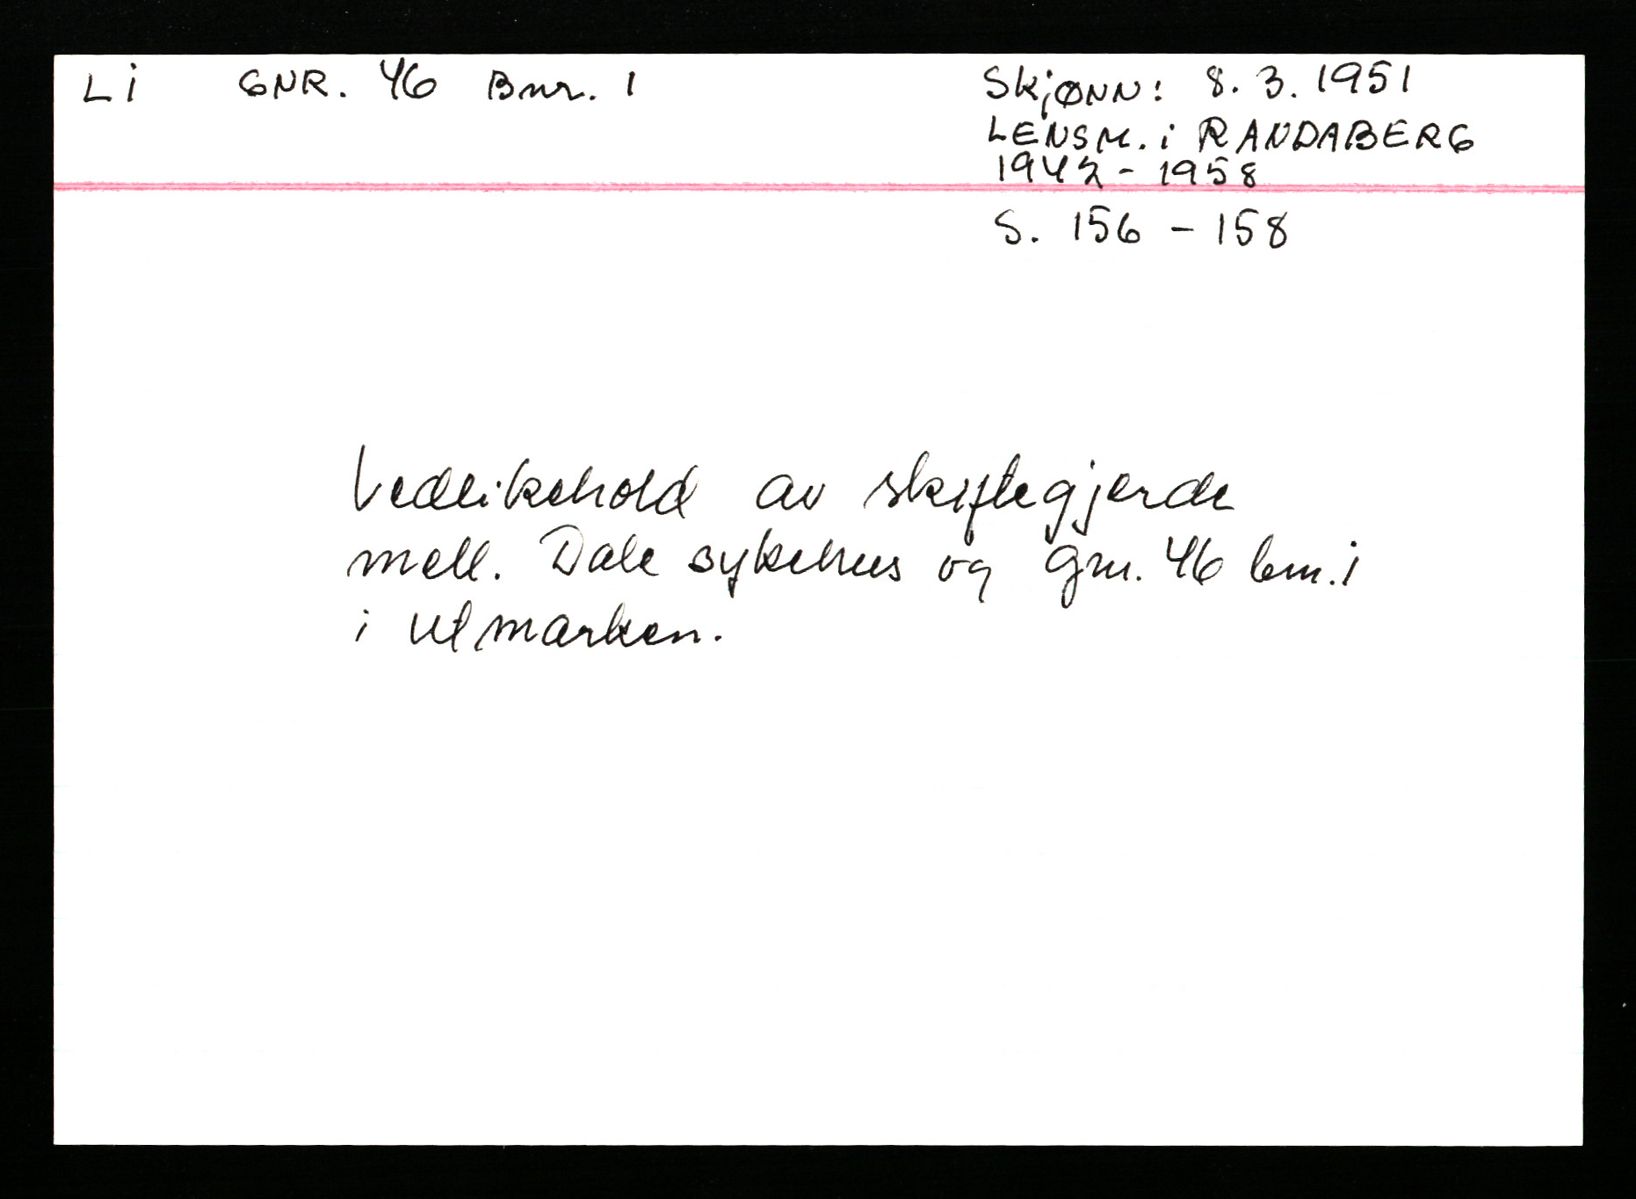 Li GNR. 46 Bnr. 1
Skjønn: 8.3.1951
LENSM. i RANDABERG
1942-1958
S. 156-158
Vedlikehold av skiftegjerde
mell. Dale sykehus og gnr. 46 bnr. 1
i utmarken.